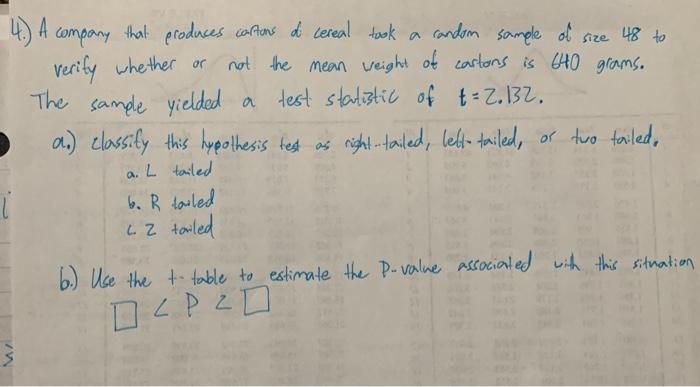 4.) A company that produces cartons of cereal took a random sample of size 48 to
verify whether or not the mean weight of cartons is 640 grams.
The sample yielded a test statistic of t=2.132.
a.) classify this hypothesis test as right-tailed, left-tailed, or two tailed.
a. L tailed
b. R tailed
c. 2 tailed
b.) Use the t-table to estimate the P-value associated with this situation
□ < P < □